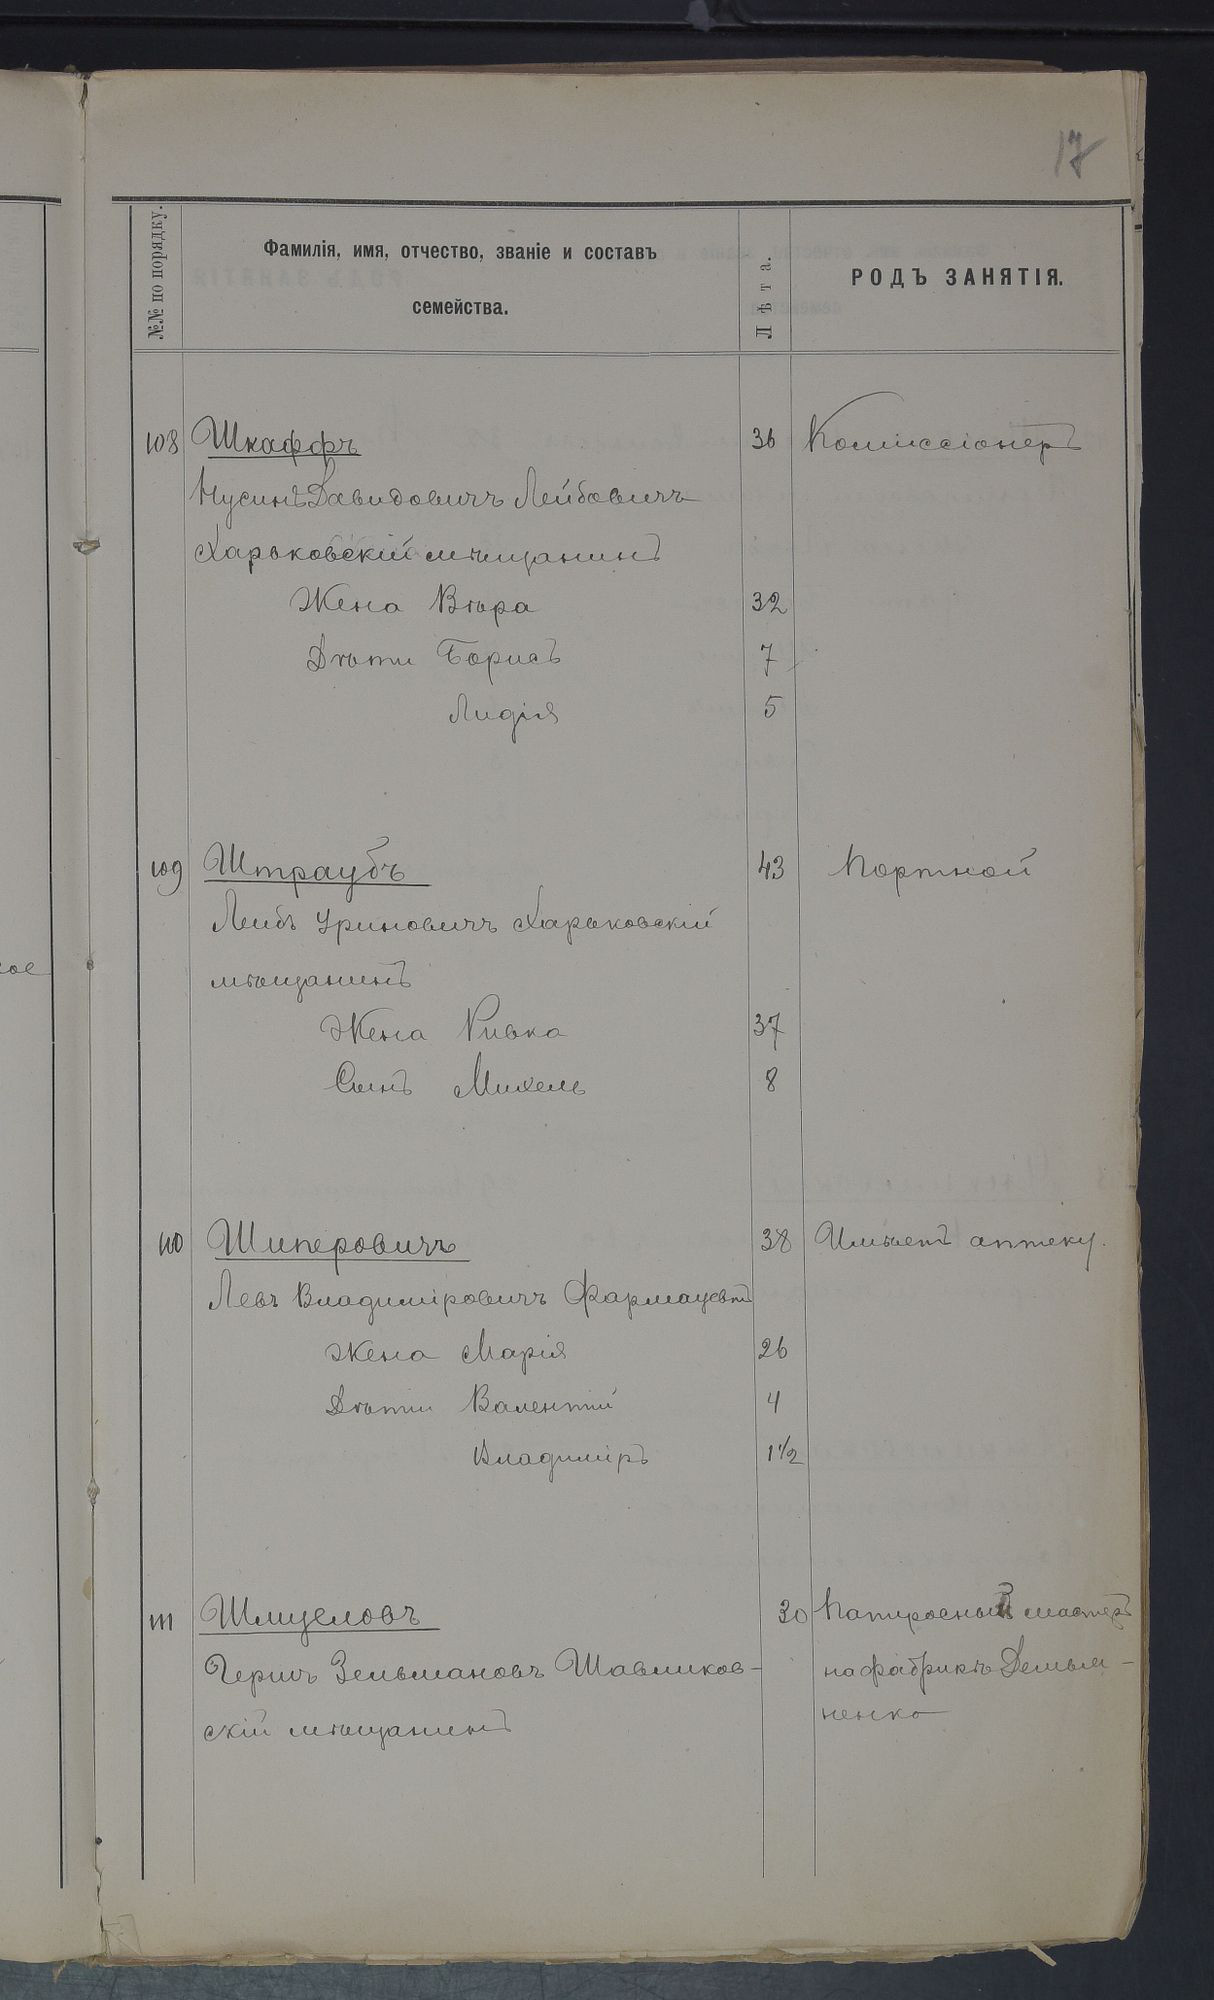 17
№№ по порядку.
Фамилія, имя, отчество, званіе и составъ
семейства.
Лѣта.
РОДЪ ЗАНЯТІЯ.
108 Шкаффъ 36 Комиссіонеръ
Нусинъ Давидовичъ Лейбовичъ
Харьковскій мѣщанинъ
Жена Вѣра 32
Дѣти Борисъ 7
Лидія 5
109 Штраубъ 43 Портной
Лейбъ Уриновичъ Харьковскій
мѣщанинъ
Жена Ривка 37
Сынъ Михель 8
110 Шиперовичъ 38 Имѣетъ аптеку.
Левъ Владиміровичъ Фармацевтъ
Жена Марія 26
Дѣти Валентій 4
Владиміръ 1 1/2
111 Шмуеловъ 30 Папиросный мастеръ
Гершъ Зельмановъ Шавликов- на фабрикѣ Демья-
скій мѣщанинъ ненко